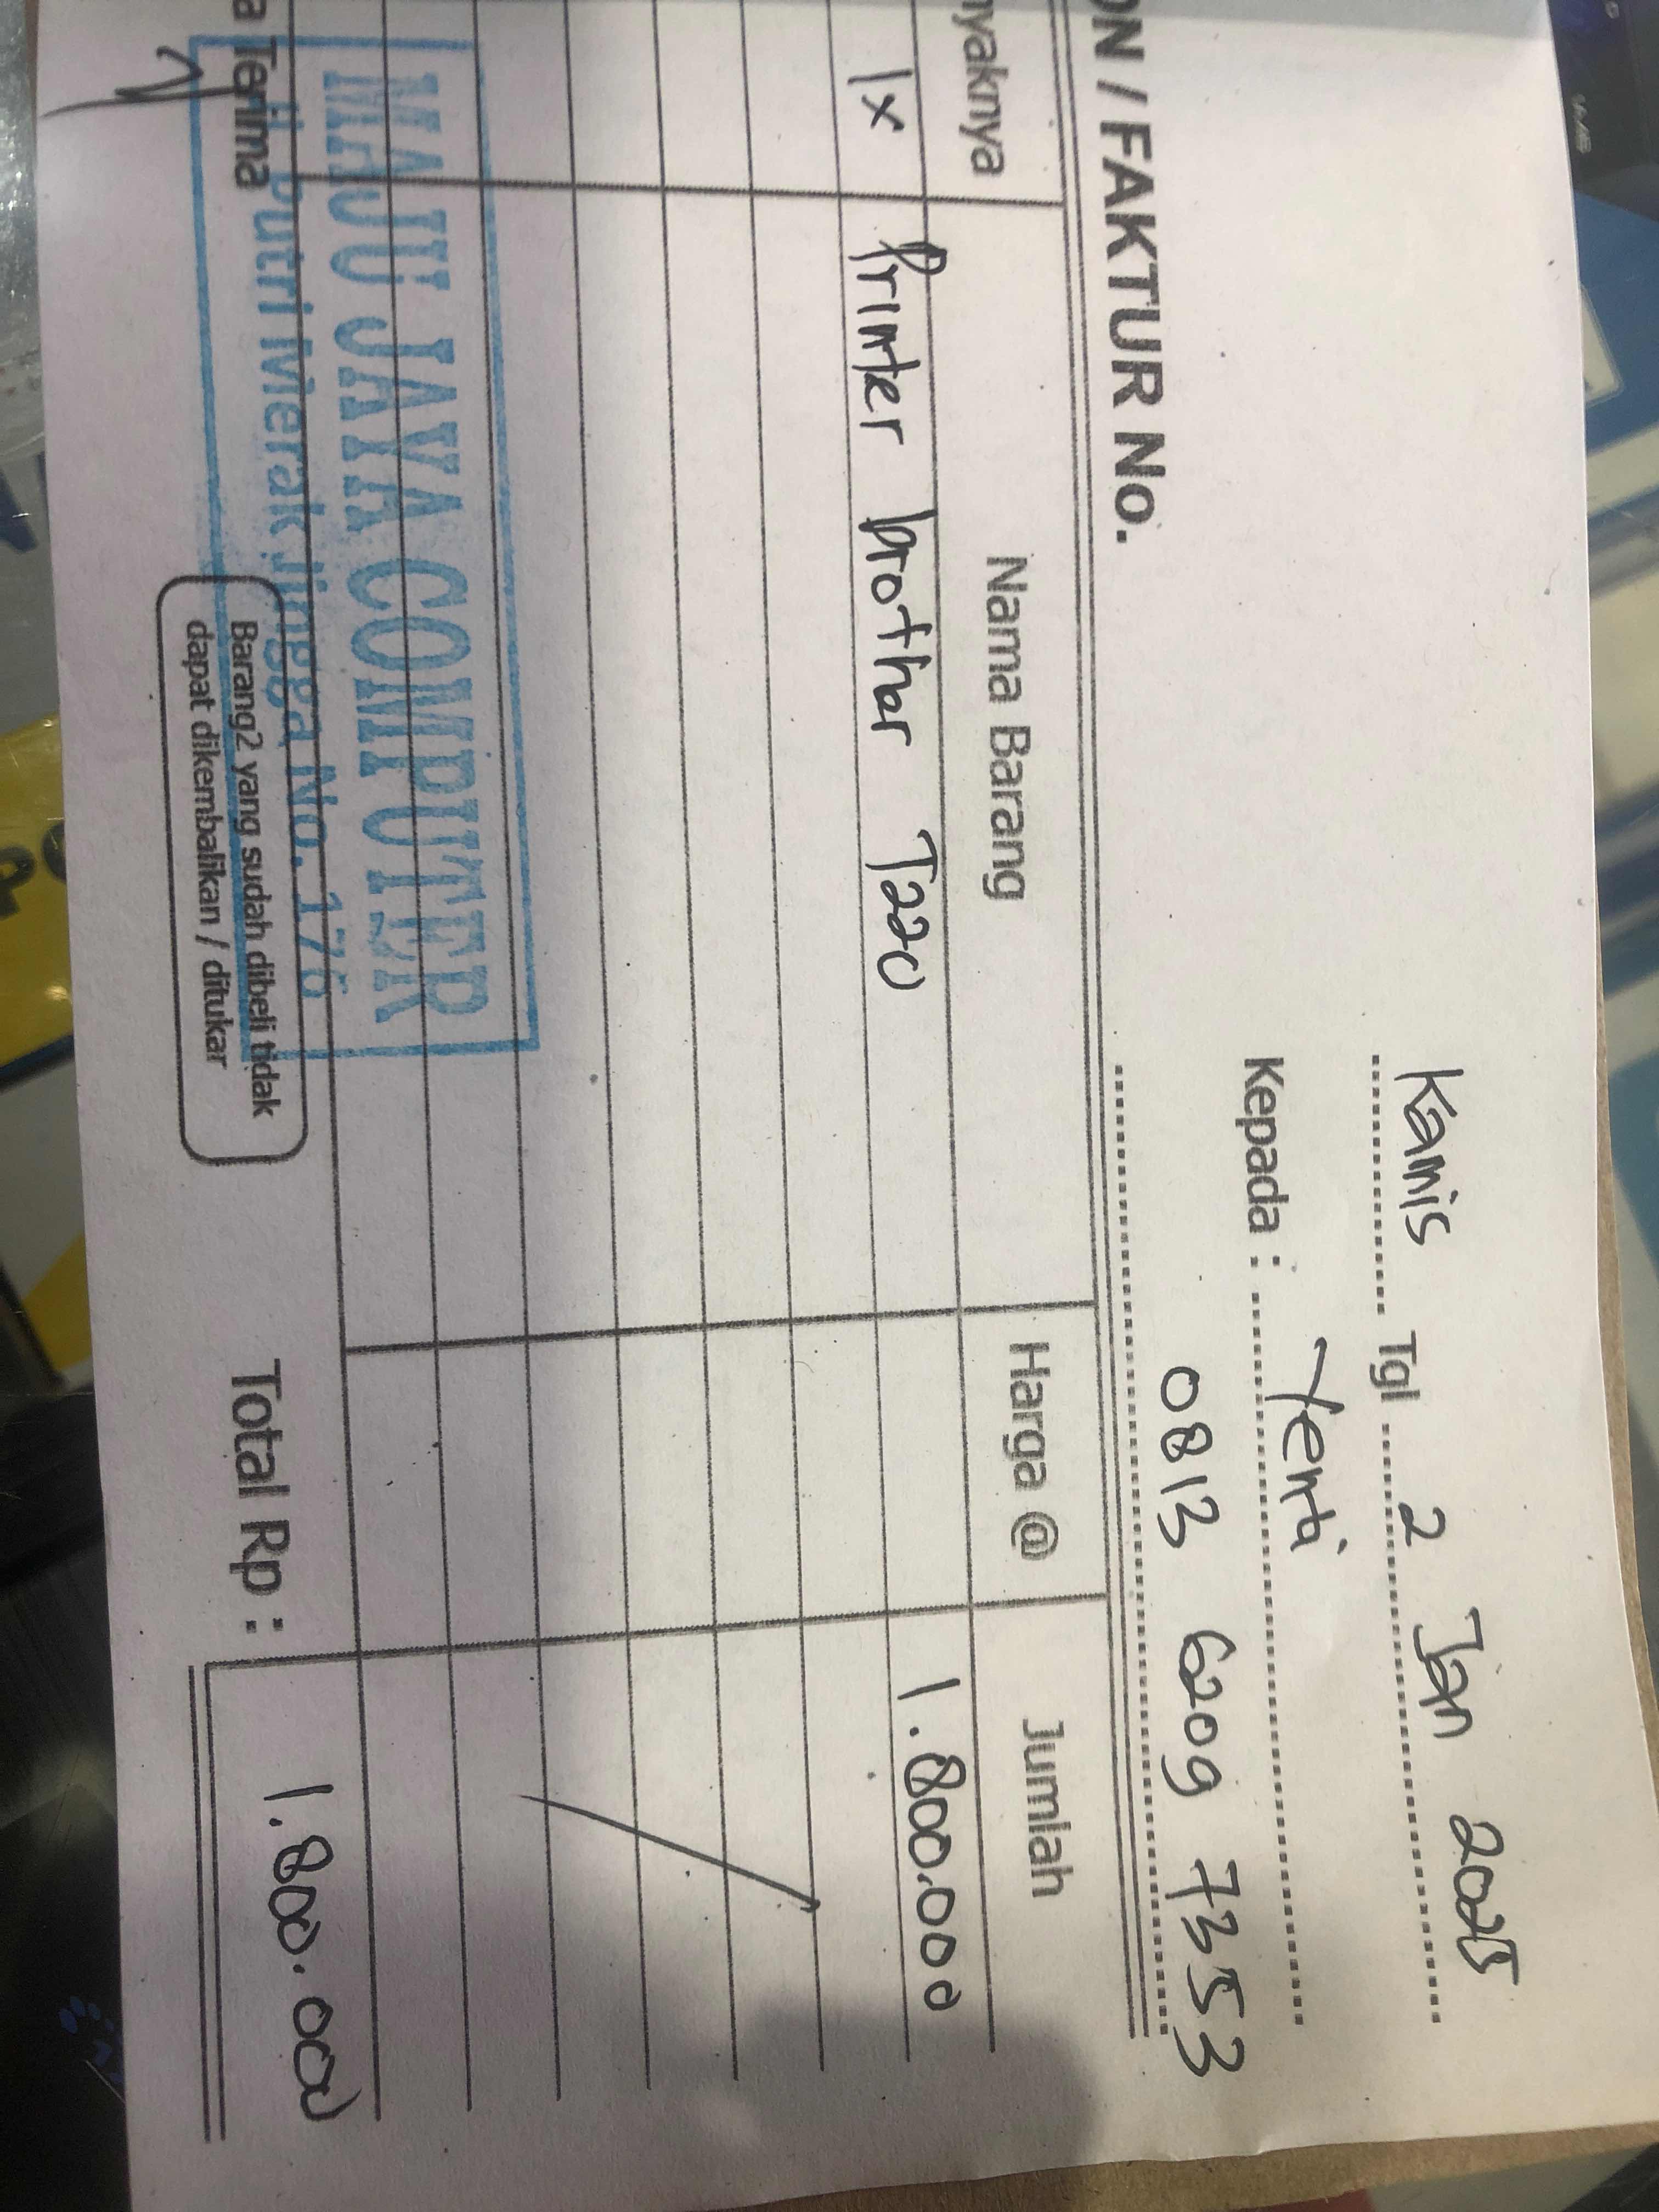 Kamis Tgl 2 Jan 2025
Kepada : Yenti
0813 6209 7353
ON / FAKTUR No.
nyaknya Nama Barang Harga @ Jumlah
1x Printer brother T220 1.800.000
MAJU JAYA COMPUTER
Jl Putri Merak Jingga No. 176
a Terima
Barang2 yang sudah dibeli tidak
dapat dikembalikan / ditukar
Total Rp : 1.800.000